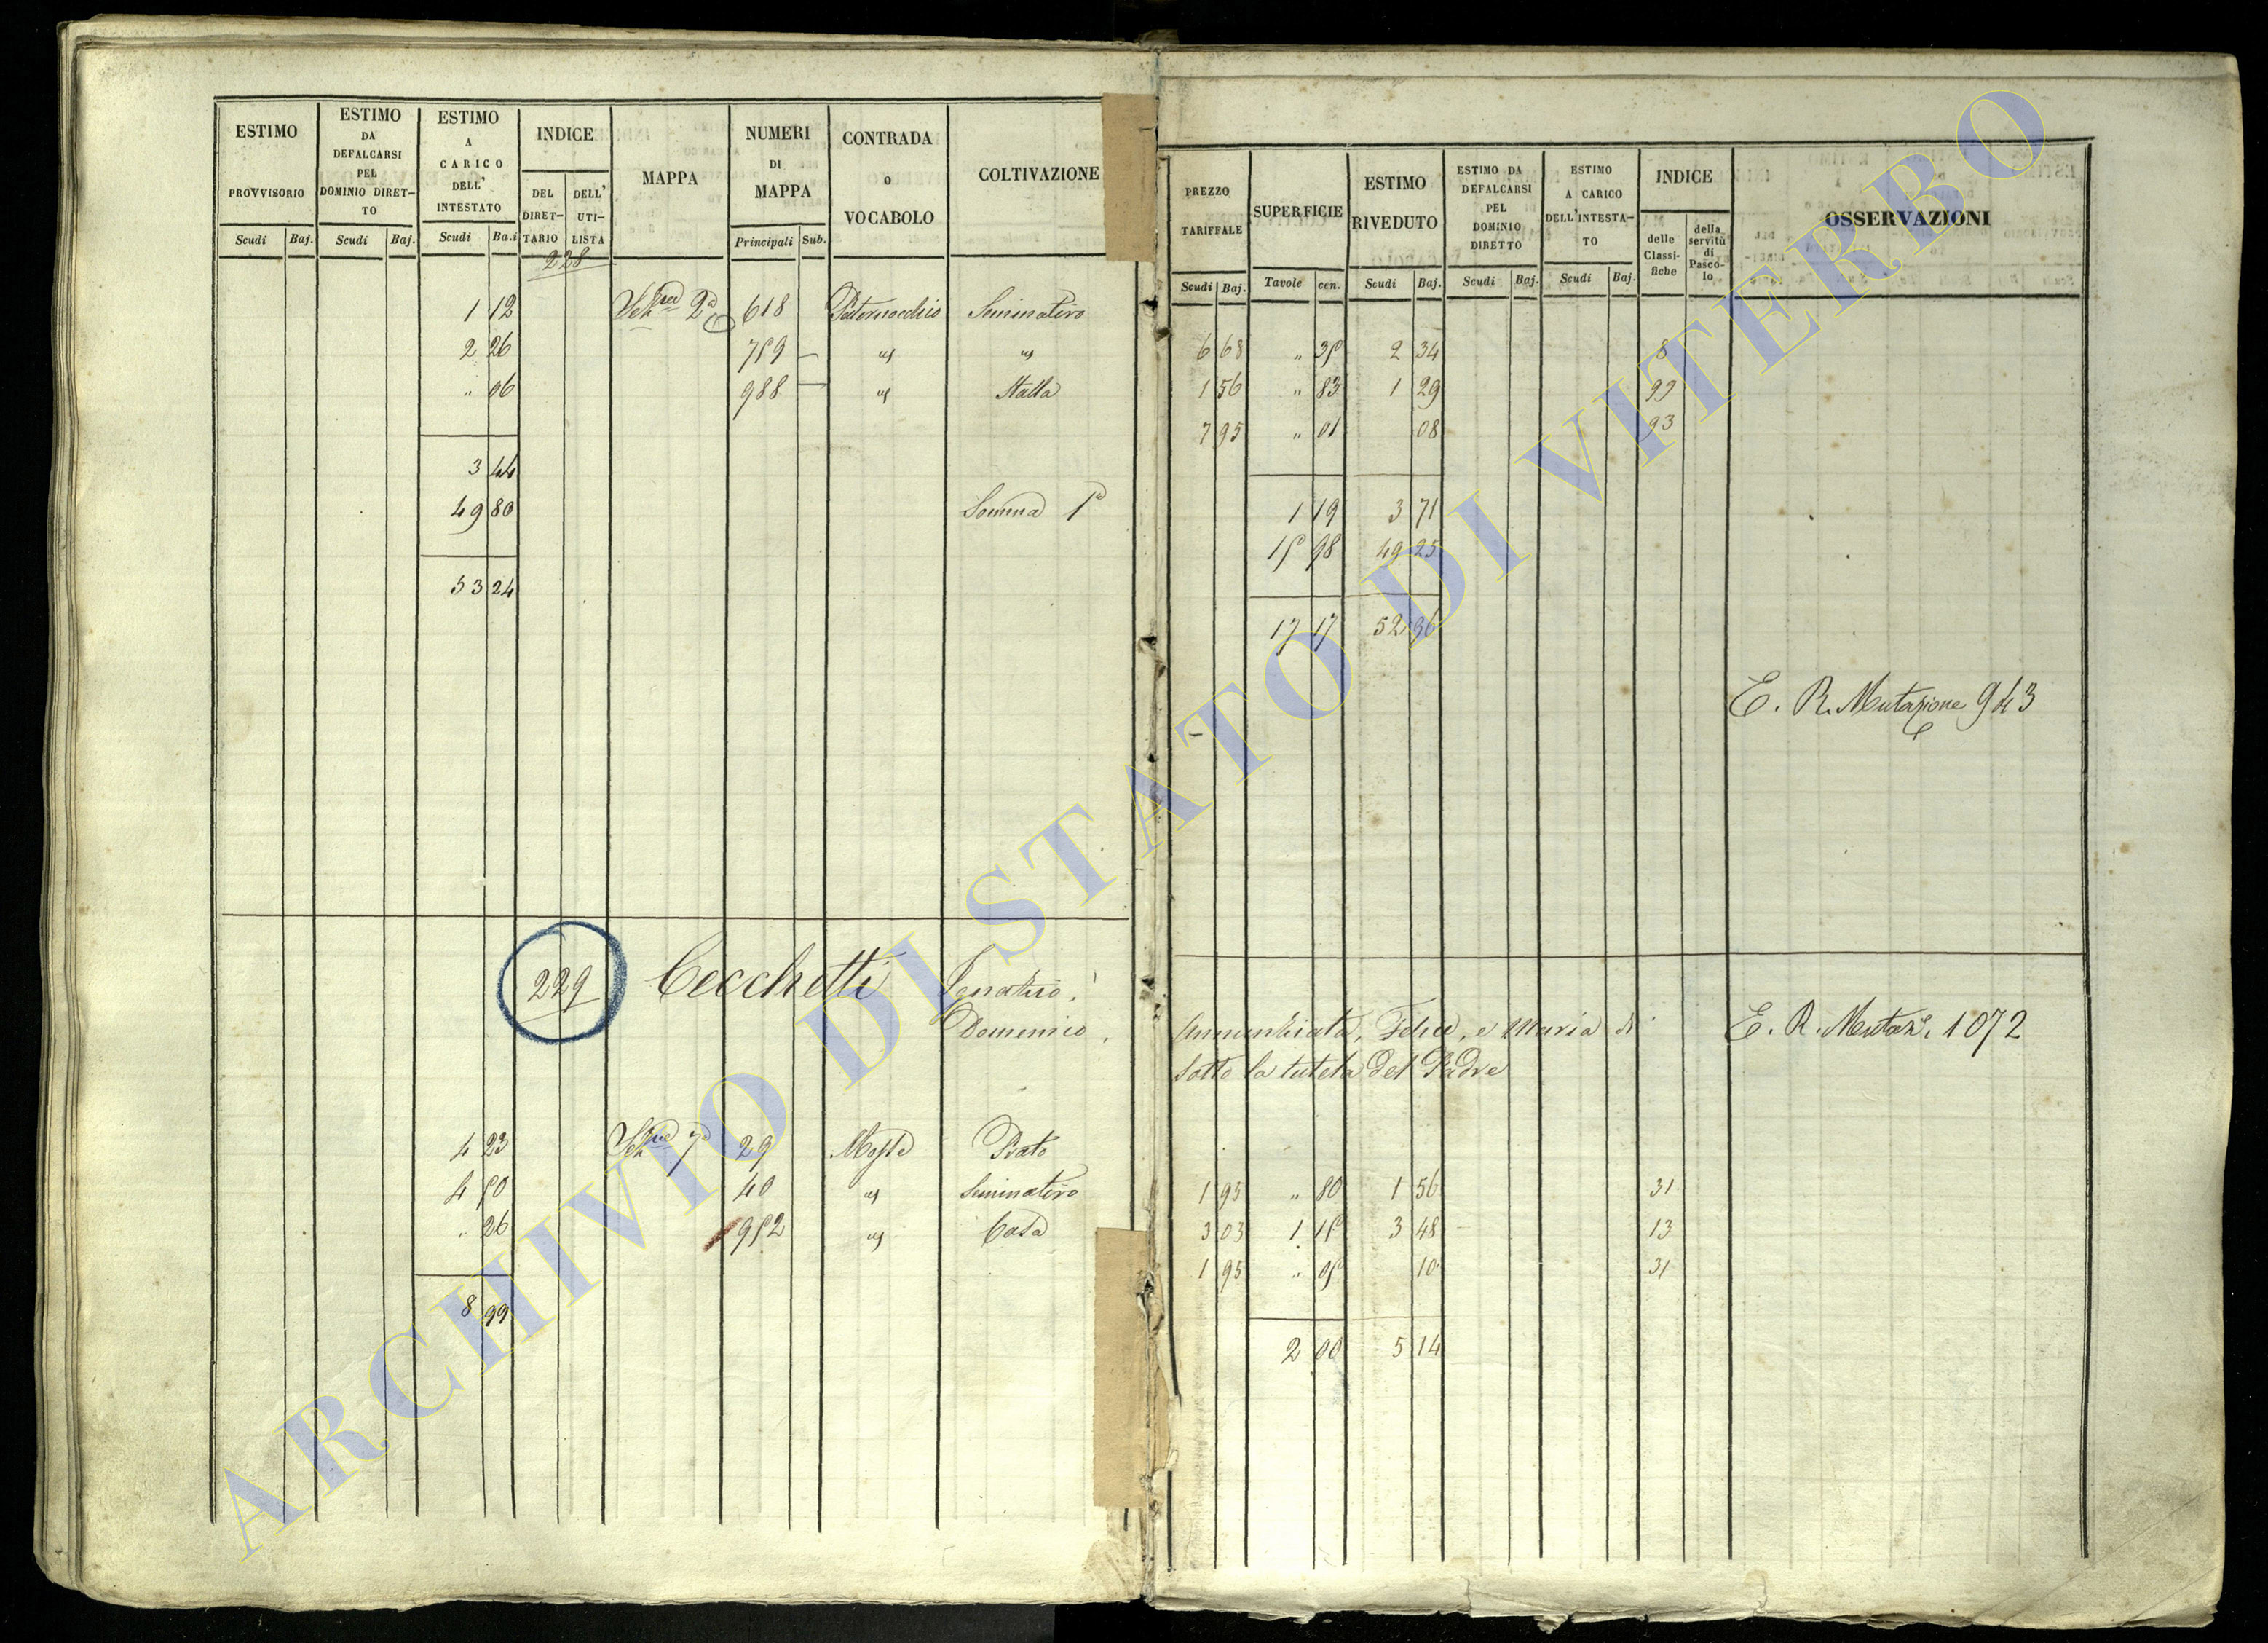 ESTIMO PROVVISORIO
ESTIMO DA DEFALCARSI PEL DOMINIO DIRET-TO
ESTIMO A CARICO DELL' INTESTATO
INDICE
DEL DIRET-TARIO
DELL' UTI-LISTA
MAPPA
NUMERI DI MAPPA
CONTRADA o VOCABOLO
COLTIVAZIONE
Scudi Baj. Scudi Baj. Scudi Ba.i Principali Sub.
228
1 12 618 Seminativo
2 26 759 " "
" 06 988 " Stalla
3 44
49 80 Somma 1ª
53 24
229 Cecchetti Domenico,
4 23 29 Prato
4 50 40 " Seminativo
" 26 952 " Casa
8 99
PREZZO TARIFFALE
SUPERFICIE
ESTIMO RIVEDUTO
ESTIMO DA DEFALCARSI PEL DOMINIO DIRETTO
ESTIMO A CARICO DELL'INTESTA-TO
INDICE
delle Classi-fiche
della servitù di Pasco-lo
OSSERVAZIONI
Scudi Baj. Tavole cen. Scudi Baj. Scudi Baj. Scudi Baj.
6 68 " 35 2 34 8
1 56 " 83 1 29 99
7 95 " 01 08 93
1 19 3 71
15 98 49 25
17 17 52 96
E. R. Mutazione 943
Annunziata, Felice, e Maria di E. R. Mutazⁿᵉ. 1072
sotto la tutela del Padre
1 95 " 80 1 56 31
3 03 1 15 3 48 13
1 95 " 05 10 31
2 00 5 14
ARCHIVIO DI STATO DI VITERBO